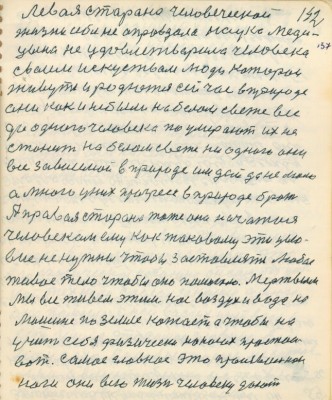 Левая старана человеческой 132
жизни себе не оправдала наука Меди- 137
цына не удовлетварила человека
своим искуствам люди которои
живуть и родются сичас в природе
они как и небыли на белом свете все
до одного человека поумирают их не
станить на белом свете ни одного они
все зависимой в природе им дай да не мало
а много у них прогресс в природе брать
А правая старана тоже она началася
человекам ему как таковому эти усло-
вие не нужны чтобы заставлять любое
живое тело чтобы оно
мы все живем этими нас воздух и вода на
Машине по земле катает а чтобы на
учить себя физически на ногах
вот. Самое главное это
ноги они всю жизь человеку дают